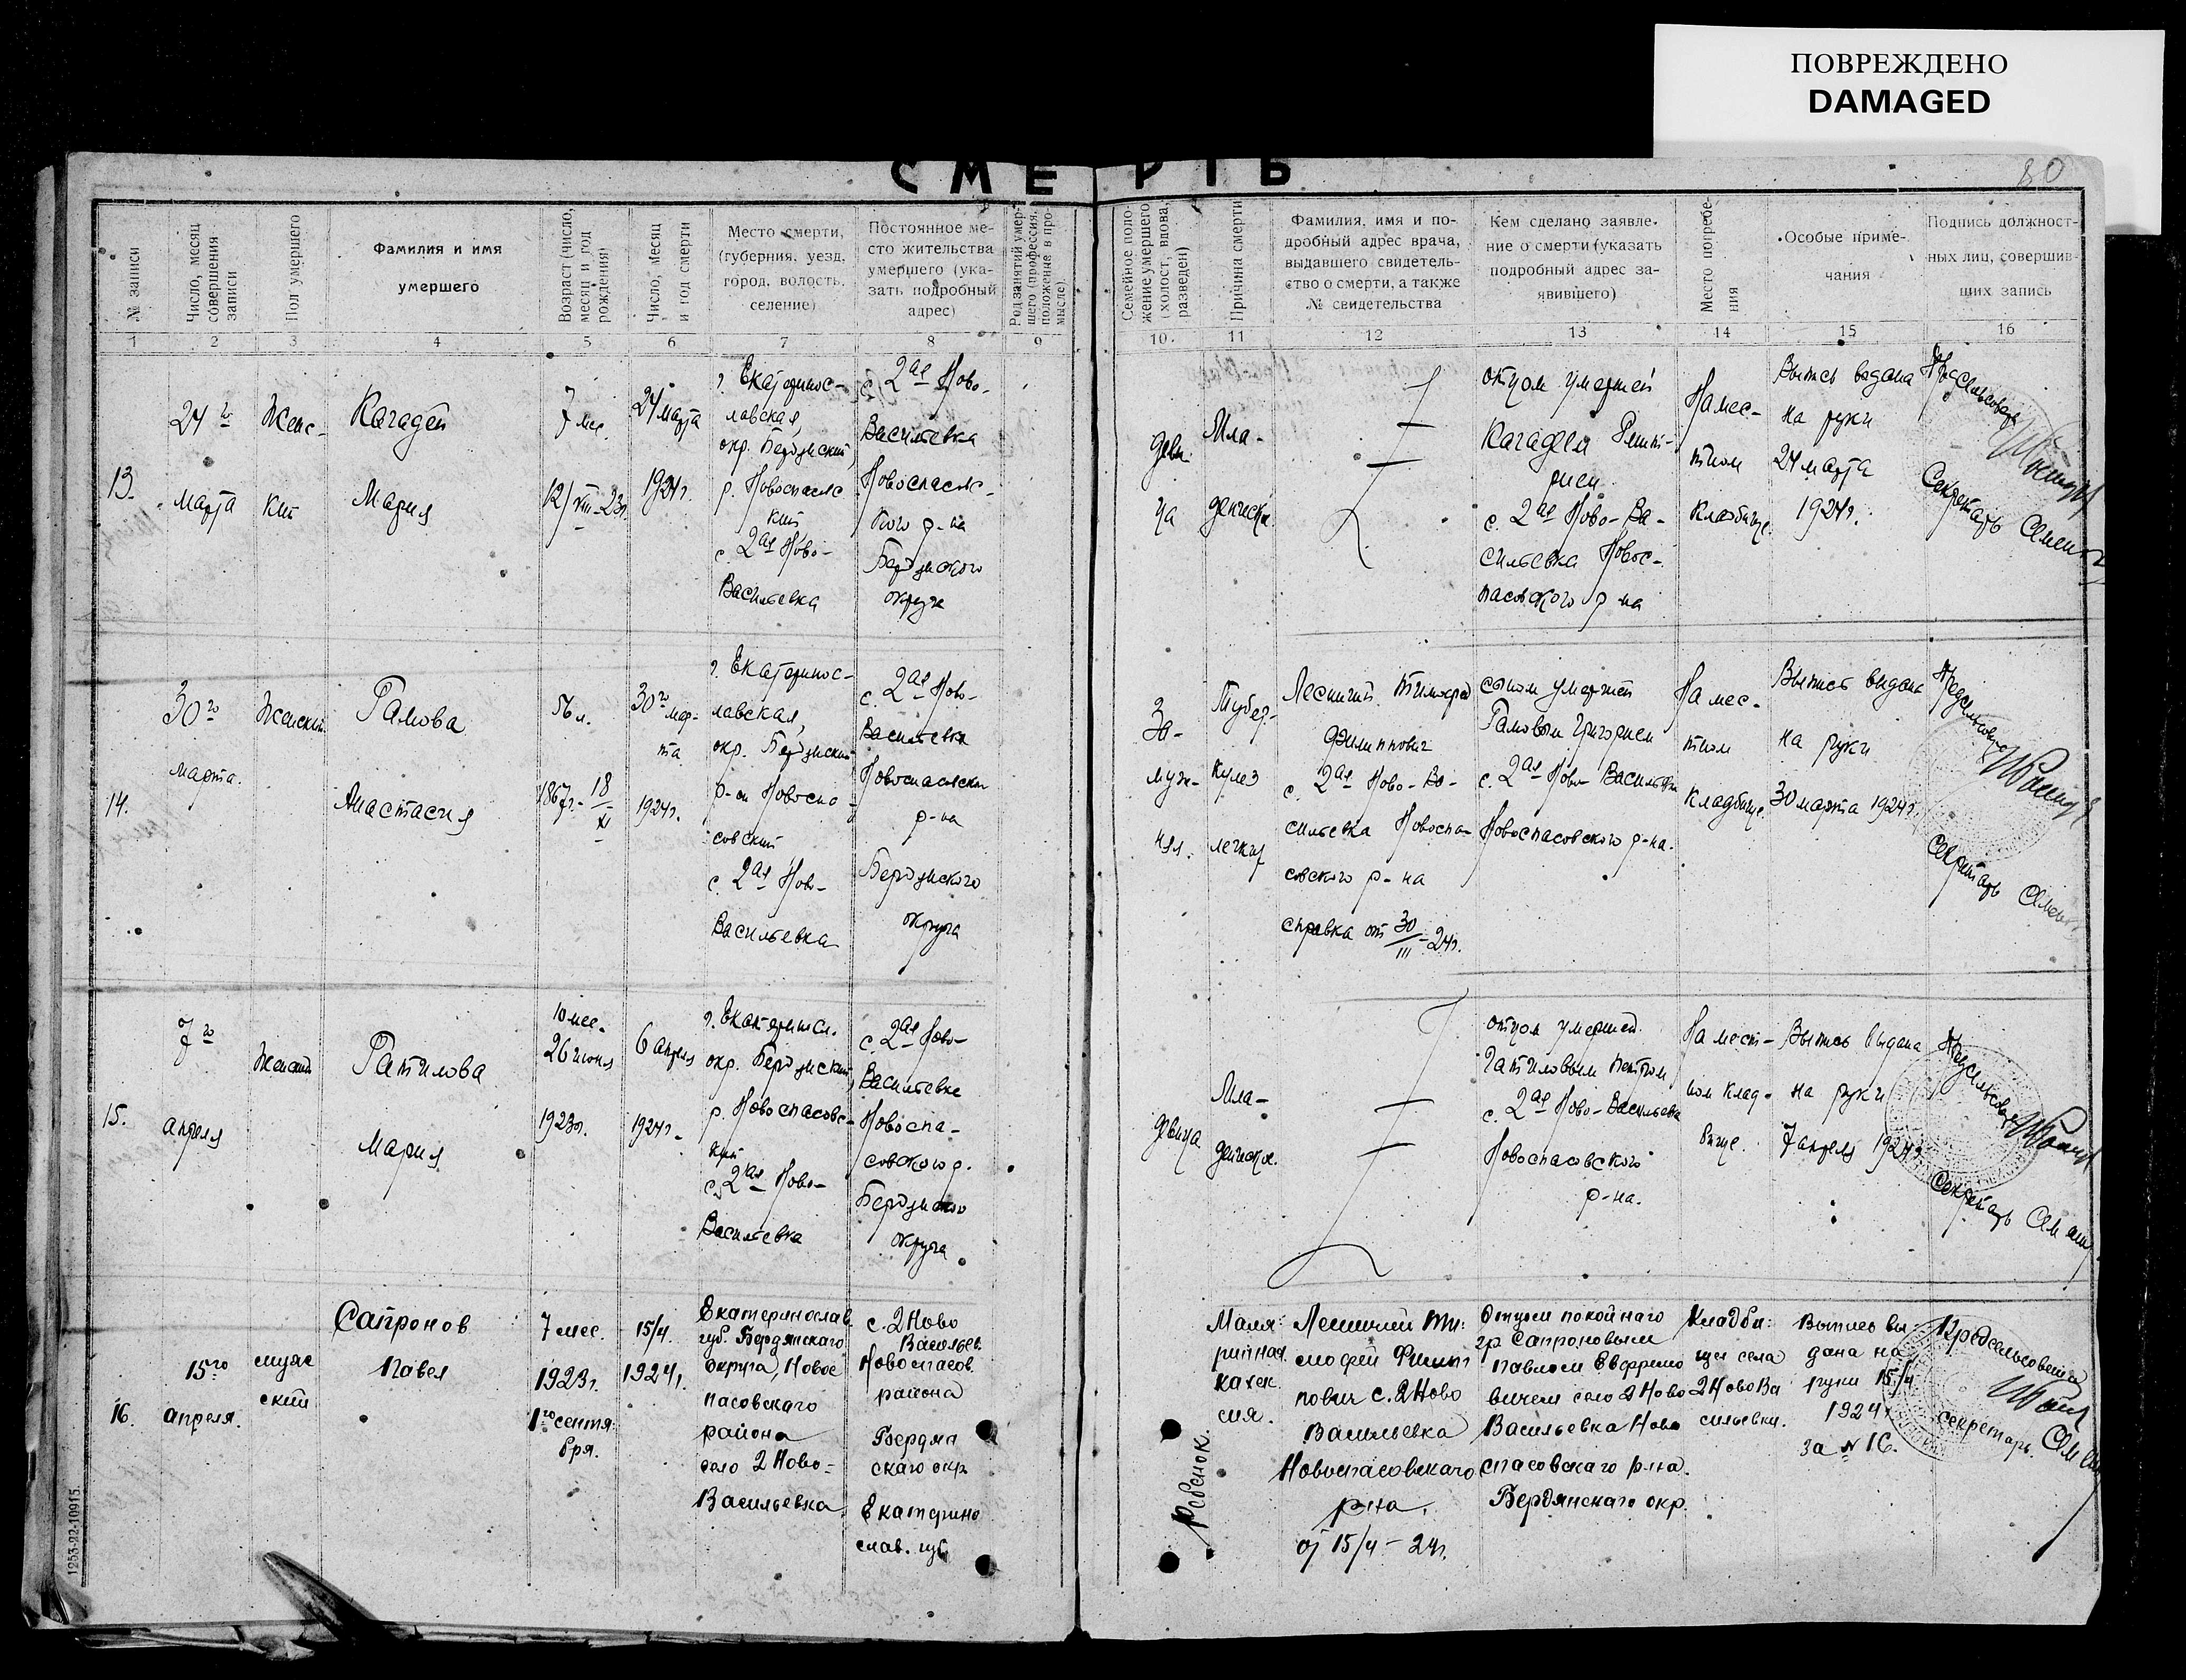 ПОВРЕЖДЕНО
DAMAGED
СМЕРТЬ
80
№ записи
Число, месяц
совершения
записи
Пол умершего
Фамилия и имя
умершего
Возраст (число,
месяц и год
рождения)
Число, месяц
и год смерти
Место смерти,
(губерния, уезд,
город, волость,
селение)
Постоянное ме-
сто жительства
умершего (ука-
зать подробный
адрес)
Род занятий умер-
шего (профессия,
положение в про-
мысле).
Семейное поло-
жение умершего
(холост, вдова,
разведен)
Причина смерти
Фамилия, имя и по-
дробный адрес врача,
выдавшего свидетель-
ство о смерти, а также
№ свидетельства
Кем сделано заявле-
ние о смерти (указать
подробный адрес за-
явившего)
Место погребе-
ния
Особые приме-
чания
Подпись должност-
ных лиц, совершив-
ших запись
1 2 3 4 5 6 7 8 9 10. 11 12 13 14 15 16
13.
24го
марта
Женс-
кий
Кагадей
Мария
7 мес.
12/VIII-23г.
24 марта
1924г.
г. Екатеринос-
лавская,
окр. Бердянский,
р. Новоспасовс
кий
с. 2ая Ново-
Васильевка
с. 2ая Ново-
Васильевка
Новоспасовс-
кого р-на
Бердянского
округа
деви-
ца
Мла-
денческ.
отцом умершей
Кагадеем
с. 2ая Ново-Ва-
сильевка Новос-
пасовского р-на
На мес-
тном
кладбище.
Выпись выдана
на руки
24 марта
1924г.
Предсельсовета
Секретарь
14.
30го
марта.
Женский
Рамова
Анастасия
56 л.
1867г.-18/XI
30го мар-
та
1924г.
г. Екатеринос-
лавская,
окр. Бердянский
р-он Новоспа-
совский
с. 2ая Ново-
Васильевка
с. 2ая Ново-
Васильевка
Новоспасовский
р-на
Бердянского
округа
За-
муж-
няя.
Тубер-
кулез
легких
Лесничий Тимофей
Филиппович
с. 2ая Ново-Ва-
сильевка Новоспа-
совского р-на
справка от 30/III-24г.
сыном умершей
Рамовым Григорием
с. 2ая Ново-Васильевка
Новоспасовского р-на.
На мес-
тном
кладбище.
Выпись выдана
на руки
30 марта 1924г.
Предсельсовета
Секретарь
15.
7го
апреля
Женский
Ратилова
Мария
10 мес.
26 июня
1923г.
6 апреля
1924г.
г. Екатеринсл.
окр. Бердянский,
р. Новоспасовс-
кий
с. 2ая Ново-
Васильевка
с. 2ая Ново-
Васильевка
Новоспа-
совского р.
Бердянского
округа
девица
Мла-
денческ.
отцом умершей
Ратиловым Петром
с. 2ая Ново-Васильевка
Новоспасовского
р-на.
На мест-
ном клад-
бище.
Выпись выдана
на руки
7 апреля 1924г.
Предсельсовета
Секретарь
16.
15го
апреля.
муже
ский
Сапронов
Павел
7 мес.
1923г.
1го сентя-
бря.
15/4.
1924г.
Екатеринослав.
губ. Бердянскаго
округа, Новос
пасовскаго
района
село 2 Ново-
Васильевка
с. 2 Ново
Васильев.
Новоспасов.
района
Бердян
скаго окр
Екатерино
слав. губ.
Ребенок.
Маля-
рийная
кахек
сия.
Лесничий Ти-
мофей Филип
пович с. 2 Ново
Васильевка
Новоспасовскаго
р-на.
от 15/4-24г.
Отцем покойнаго
гр. Сапроновым
Павлом Евфимо
вичем село 2 Ново
Васильевка Ново
спасовскаго р-на.
Бердянскаго окр.
Кладби-
ще села
2 Ново Ва
сильевки.
Выпись вы-
дана на
руки 15/4
1924г.
за № 16.
Предсельсовета
секретарь
1253-22-10915.